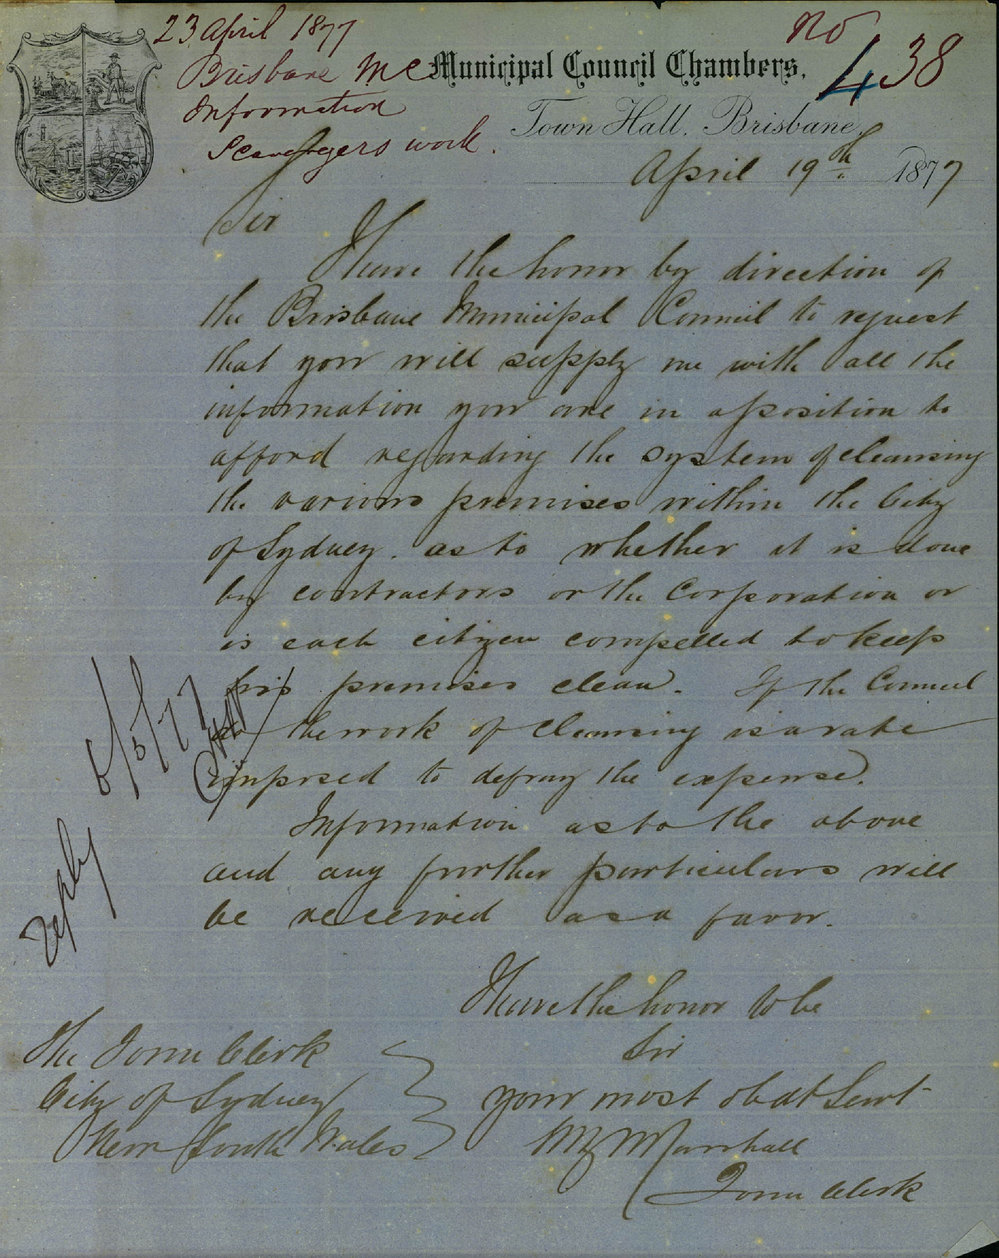 23 April 1877
Brisbane MC
Information
Scavengers work.
No 438
Municipal Council Chambers,
Town Hall, Brisbane,
April 19th 1877
Sir
I have the honor by direction of
the Brisbane Municipal Council to request
that you will supply me with all the
information you are in a position to
afford regarding the system of cleansing
the various premises within the City
of Sydney. as to whether it is done
by contractors or the Corporation or
is each citizen compelled to keep
his premises clean. If the Council
the work of cleansing is a rate
imposed to defray the expense.
Information as to the above
and any further particulars will
be received as a favor.
I have the honor to be
Sir
your most obdt Servt
Marshall
Town Clerk
The Town Clerk
City of Sydney
New South Wales
reply 6/5/77